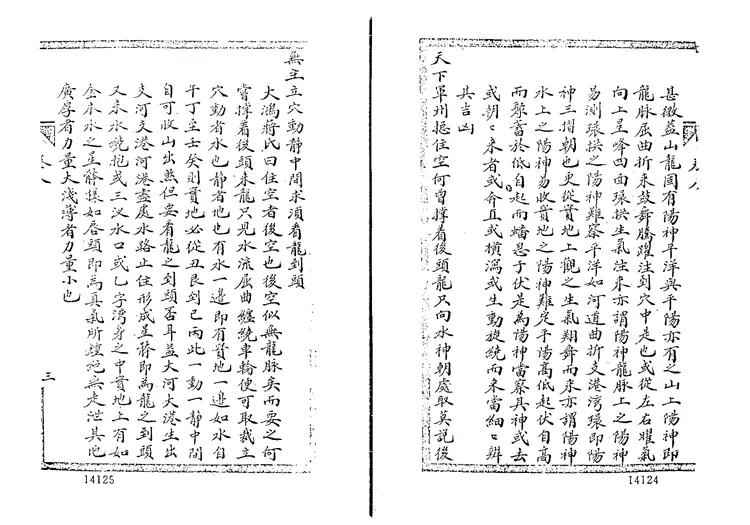 甚微蓋山龍固有陽神平洋與平陽亦有之山上陽神即
龍脉屈曲折來鼓舞騰躍注到穴中是也或從左右曜氣
向上呈峰四面環拱生氣注來亦謂陽神龍脉上之陽神
易測環拱之陽神難察平洋如河道曲折支港灣環即陽
神三摺朝也更從實地上觀之生氣翔舞而來亦謂陽神
水上之陽神易收實地之陽神難定平陽高低起伏自高
而聚蓄於低自起而蟠悬于伏是為陽神當察其神或去
或朝〻來者或介直或橫瀉或生動旋繞而來當細〻辨
其吉凶
天下軍州捴住空何曾撑着後頭龍只向水神朝處取莫說後
14124
無主立穴動靜中間求須看龍到頭
大鴻蔣氏曰住空者後空也後空似無龍脉矣而要之何
嘗撑着後頭來龍只見水流屈曲纏繞車輪便可取裁立
穴動者水也靜者地也有水一邊即有實地一邊如水自
午丁至壬癸則實地必從丑艮到己丙此一動一靜中間
自可收山出煞但要看龍之到頭否耳蓋大河大港生出
支河支港河港盡處水路止住形成星體即為龍之到頭
又來水曉抱或三义水口或乙字灣身之中實地上有如
金木水之星體樣如唇頭即為真氣所鍾死無走泄其地
廣厚者力量大淺薄者力量小也
三
14125